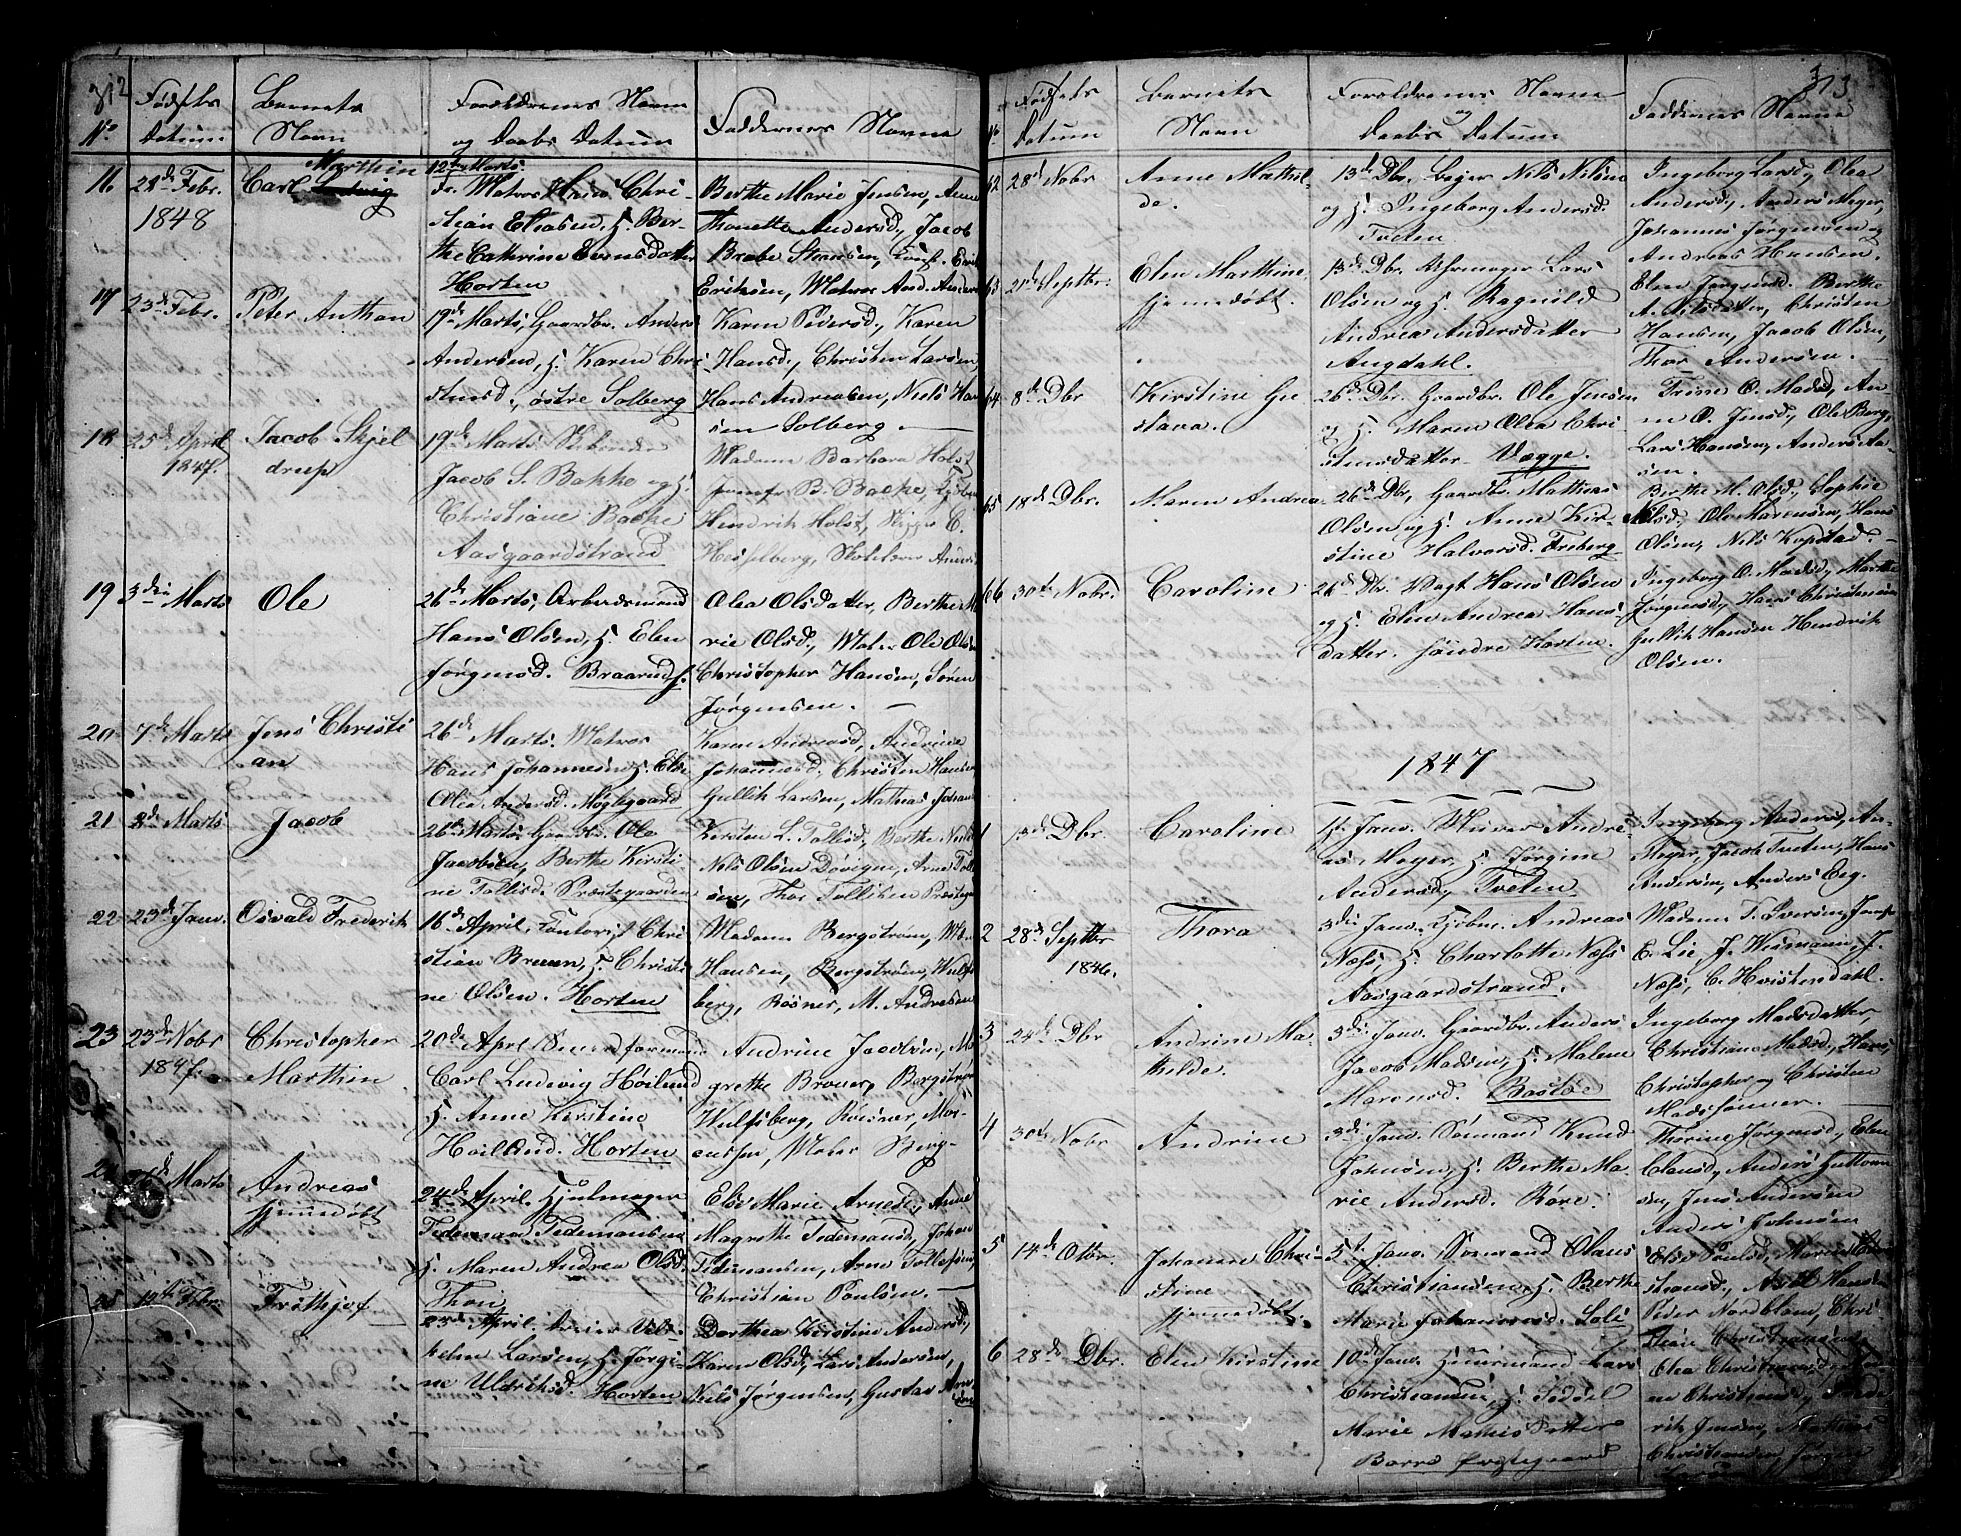 312
No
Fødsels
Datum
Barnets
Navn
Forældrenes Navne
og Daabs Datum
Faddernes Navne
16
28de Febr.
1848
Carl Ludvig
Marthin
12te Marts
Matros Hans Chri-
stian Eliasen, H. Ber-
the Cathrine Evensdatter
Horten
Berthe Marie Jensen, Anne
Thonette Andersd., Jacob
Eriksen, Matros And. Anders
17
23de Febr.
Peter Anthon
19de Marts, Gaardbr. Anders
Andersen, H. Karen Chri-
stensd., østre Solberg
Karen Pedersd., Karen
Hansd., Christen Larsen,
Hans Andreasen, Niels Han
sen Solberg.
18
25de April
1847.
Jacob Skjel
drup
19de Marts Skibsreder
Jacob S. Bakke og H.
Christiane Backe
Aasgaardstrand
Madame Barbara Holst
Jomfr. B. Backe,
Hendrik Holst, C.
Hesselberg,
19
3die Marts
Ole
26de Marts, Arbeidsmand
Hans Olsen, H. Elen
Jørgensd. Braarud
Olea Olsdatter, Berthe Ma
rie Olsd., Mater Ole Olsen
Christopher Hansen, Søren
Jørgensen.
20
7de Marts
Jens Christi
an
26de Marts. Matros
Hans Johannesen, H. Else
Olea Andersd. Møglegaard
Karen Andreasd., Andrine
Johannesd., Christen Hansen
Gullik Larsen, Mathias Johan
21
8de Marts
Jacob
26de Marts Gaardbr. Ole
Jacobsen, Berthe Kirsti
ne Tollisd. Præstegaarden
Kirsten L. Tollisd., Berthe
Nils Olsen Døvigen, Arne Tolli
sen, Thor Tollisen Præstegaar
22
23de Janv.
Osvald Frederik
16de April, Contorist Chri
stian Bruun, H. Christi
ne Olsen. Horten
Madame Bergstrøm, M
Hansen, Bergstrøm, Wulfs
berg, Rosner, M. Andresen
23
23de Nobr
1847.
Christopher
Marthin
20de April formand
Carl Ludvig Höilund
H. Anne Kirstine
Höilund. Horten
Andrine Jacobsen, Ma
grethe Brouer, Bergstrøm
Wulfsberg, Mar-
cussen, Mater Berg-
24
16de Marts
Andreas
hjemmedøbt
24de April. Hjulmager
Tidemand Tidemandsen
H. Maren Andrea Olsd.
Thon
Else Marie Arnesd., Anne
Magrethe Tidemandsd., Johan
Tidemansen, Arne Tollefsen,
Christian Poulsen.
25
10de Febr.
Frithjof
23de April, Vil-
helm Larsen, H. Jørgi-
ne Uldriksd. Horten
Dorthea Kirstine Andersd.,
Karen Olsd., Lars Andersen,
Niels Jørgensen, Gustav Arne
sen
313
No
Fødsels
Datum
Barnets
Navn
Forældrenes Navne
og
Daabs Datum
Faddernes Navne
62
28de Nobr
Anne Mathil-
de.
13de Dbr. Leyer Nils Nilsen
og H. Ingeborg Andersd.
Tveten
Ingeborg Larsd., Olea
Andersd., Anders Meyer,
Johannes Jørgensen og
Andreas Hansen.
63
21de Septbr.
Elen Marthine
hjemmedøbt.
13de Dbr. Lars
Olsen og H. Ragnild
Andrea Andersdatter
Augdahl.
Elen Berthe
A. Nilsdatter, Christen
Hansen, Jacob Olsen,
Thor Andersen.
64
8de Dbr
Kirstine Gu
stava.
26de Dbr. Gaardbr. Ole Jensen
og H. Maren Olea Chri-
stensdatter Vegge.
Trine O. Madsd., An-
ne O. Jensd., Ole Berg,
Lars Hansen, Anders La-
sen.
65
18de Dbr.
Maren Andrea
26de Dbr, Gaardbr. Mathias
Olsen og H. Anne Kir-
stine Halvorsd. Freberg
Berthe M. Olsd., Sophie
Nilsd., Ole Marensen, Hans
Olsen, Nils Kopstad.
66
30te Nobr.
Caroline
26de Dbr. Vagt Hans Olsen
og H. Elen Andrea Hans
datter. søndre Horten.
Ingeborg O. Madsd., Marthe
Jørgensd., Hans Christensen
Gullik Hansen Hendrik
Olsen.
1847
1
13de Dbr
Caroline
1ste Janv. Murer Andre-
as Meyer, H. Jørgine
Andersd., Tveten
Ingeborg Andersd., An-
Meyer, Jacob Tveten, Hans
Andersen, Anders Eeg.
2
28de Septbr
1846.
Thora
3die Janv. Kjøbm. Andreas
Næss, H. Charlotte Næss
Aasgaardstrand.
Madame T. Iversen, Jomfr
E. Lie, J. Wismann, J.
Næss, C. Hvistendahl.
3
24de Dbr
Andrine Ma-
thilde.
3die Janv. Gaardbr. Anders
Jacob Madsen, H. Malene
Marensd. Bastøe
Ingeborg Madsdatter
Christiane Madsd., Hans,
Christopher og Christen
Madssønner.
4
30te Nobr
Andrine
3die Janv. Sømand Knud
Johnsen, H. Berthe Ma-
rie Andersd. Røre.
Thorine Jørgensd., Elen
Clausd., Anders Guttorm
sen, Jens Andersen
Anders Johnsen
5
14de Otbr.
Johanne Chri-
stine
hjemmedøbt.
5te Janv. Sømand Olaus
Christiansen, H. Berthe
Marie Johannesd. Solie
Else Poulsd., Maren
Peder Nordblom, Chri
stian Christiansen
6
28de Dbr.
Elen Kirstine
10de Janv. Huusmand Lars
Christiansen, H. Isdøel
Marie Mathisdatter
Borre Prestegaard
Olea Christiansd.,
ne Christiansd., Frede
rik Jensen, Mathias
Christiansen, Jørgen